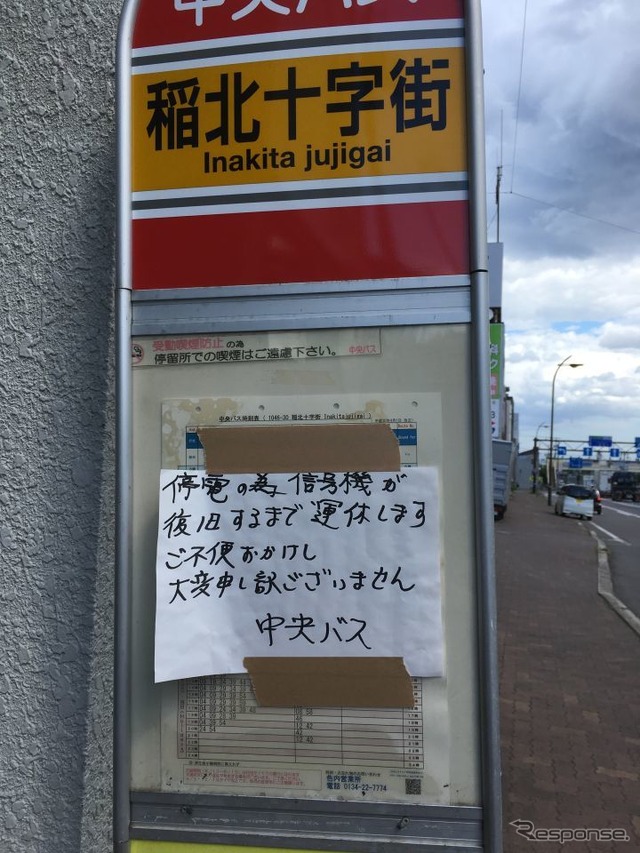 中央バス
稲北十字街
Inakita jujigai
受動喫煙防止の為
停留所での喫煙はご遠慮下さい。 中央バス
中央バス時刻表 ( 1046-30 稲北十字街 Inakita jujigai )
停電の為 信号機が
復旧するまで運休します
ご不便おかけし
大変申し訳ございません
中央バス
色内営業所
電話 0134-22-7774
Response.